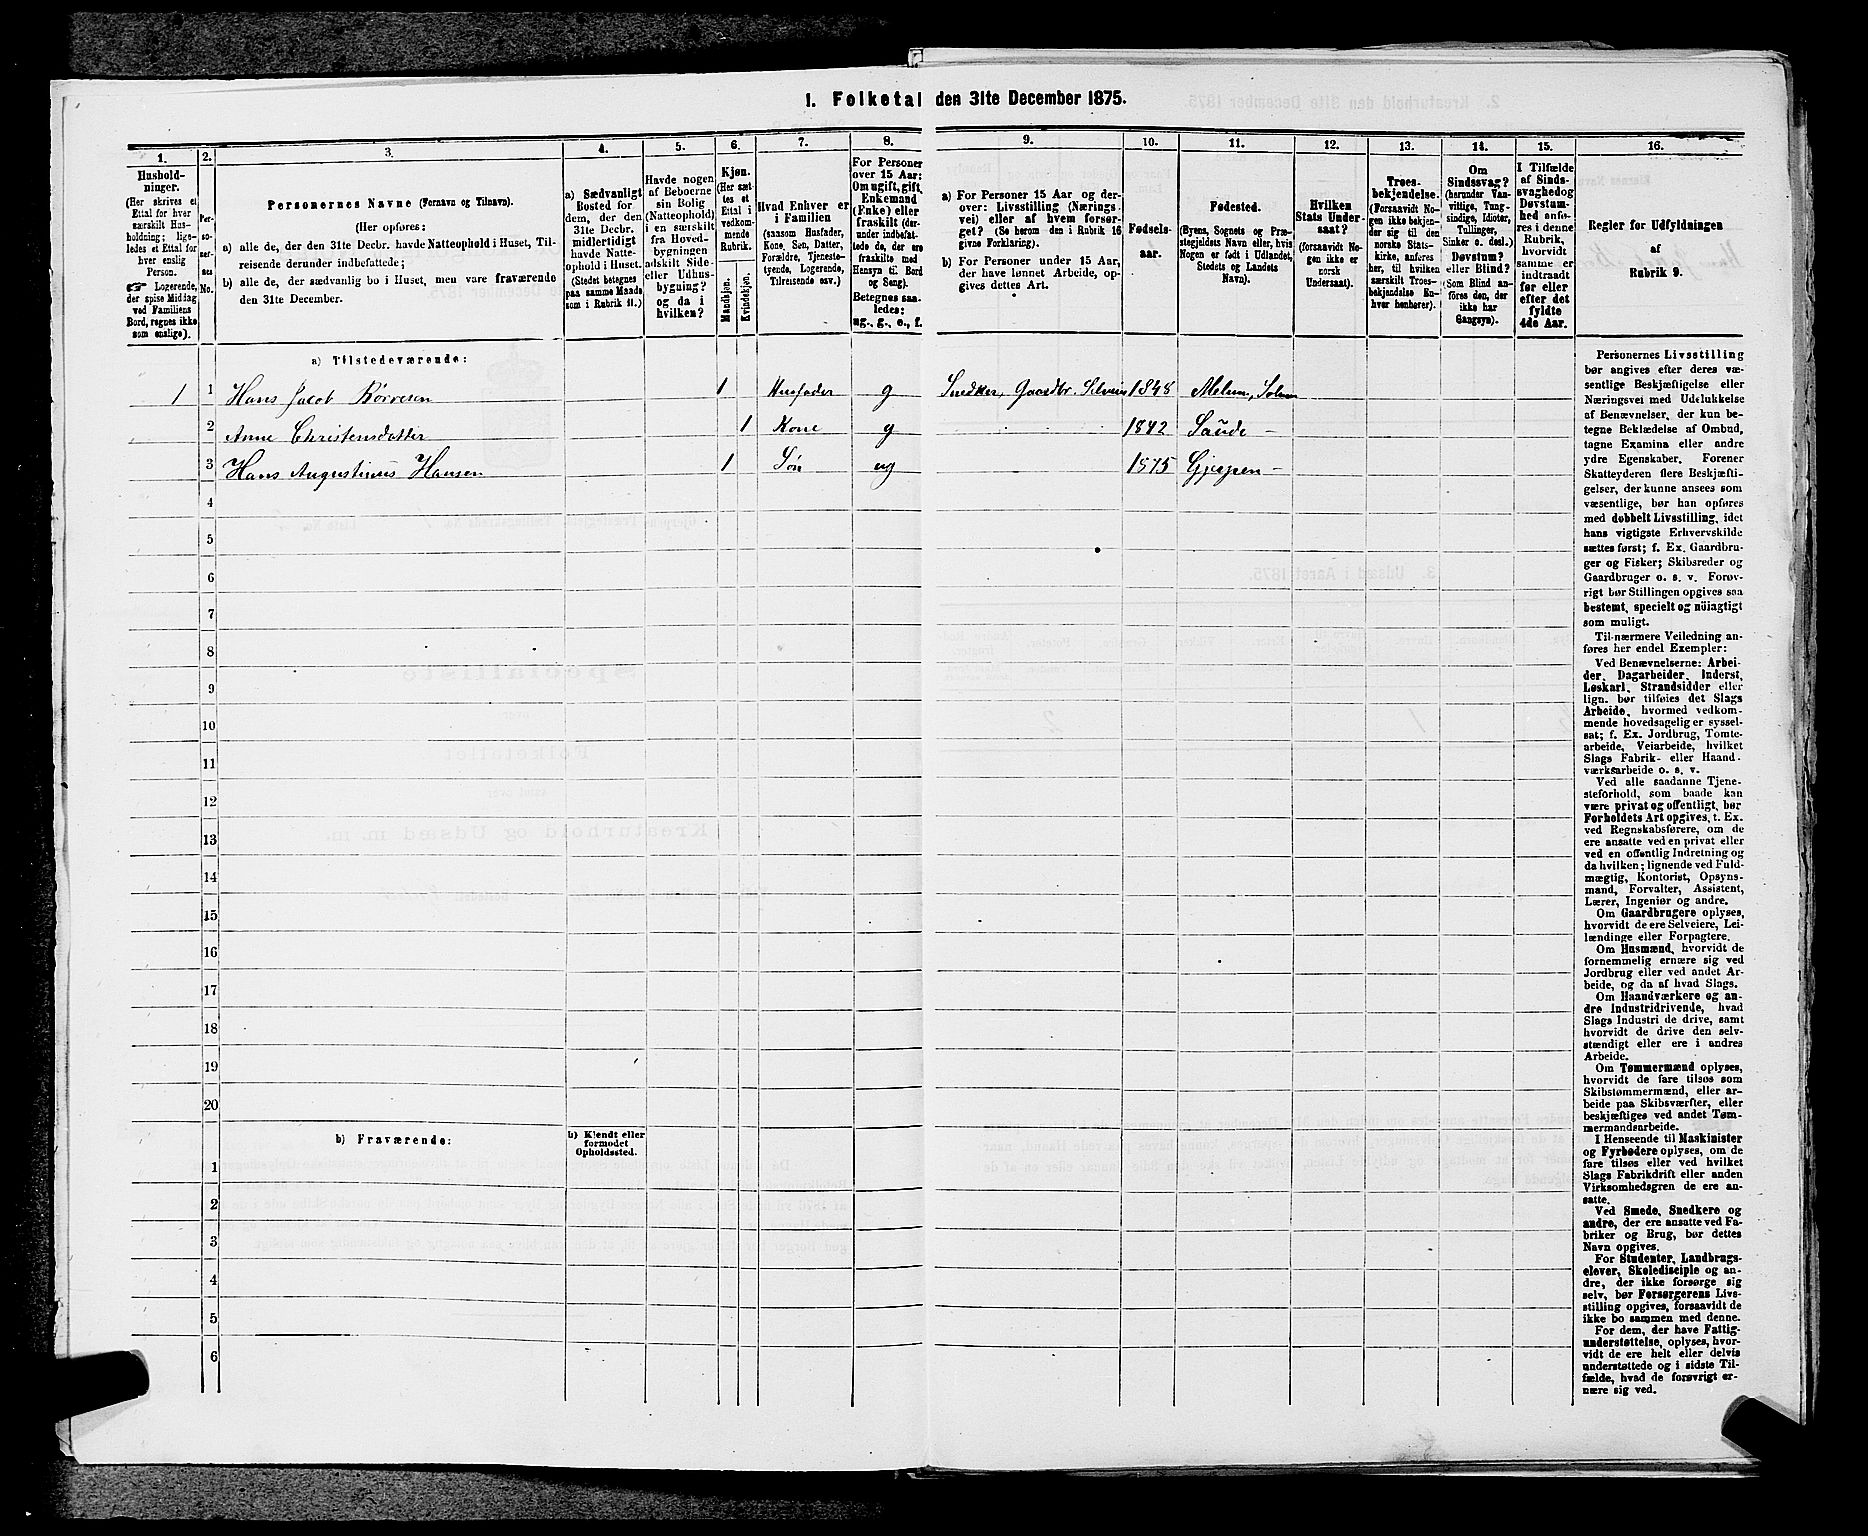 1. Folketal den 31te December 1875.
1. 2. 3. 4. 5. 6. 7. 8. 9. 10. 11. 12. 13. 14. 15. 16.
Hushold-
ninger.
(Her skrives et
Ettal for hver
særskilt Hus-
holdning; lige-
ledes et Ettal for
hver enslig
Person.
☞ Logerende,
der spise Middag
ved Familiens
Bord, regnes ikke
som enslige).
Per-
so-
ner-
nes
No.
Personernes Navne (Fornavn og Tilnavn).
(Her opføres:
a) alle de, der den 31te Decbr. havde Natteophold i Huset, Til-
reisende derunder indbefattede;
b) alle de, der sædvanlig bo i Huset, men vare fraværende
den 31te December.
a) Sædvanligt
Bosted for
dem, der den
31te Decbr.
midlertidigt
havde Natte-
ophold i Huset.
(Stedet betegnes
paa samme Maade
som i Rubrik 11.)
Havde nogen
af Beboerne
sin Bolig
(Natteophold)
i en særskilt
fra Hoved-
bygningen
adskilt Side-
eller Udhus-
bygning?
og da i
hvilken?
Kjøn.
(Her sæt-
tes et
Ettal i
vedkom-
mende
Rubrik.
Mandkjøn.
Kvindekjøn.
Hvad Enhver er
i Familien
(saasom Husfader,
Kone, Søn, Datter,
Forældre, Tjeneste-
tyende, Logerende,
Tilreisende osv.)
For Personer
over 15 Aar:
Om ugift, gift,
Enkemand
(Enke) eller
fraskilt (der-
under indbefat-
tede de, der ere
fraskilte med
Hensyn til Bord
og Seng).
Betegnes saa-
ledes:
ug., g., e., f.
a) For Personer 15 Aar og der-
over: Livsstilling (Nærings-
vei) eller af hvem forsør-
get? (Se herom den i Rubrik 16
givne Forklaring).
b) For Personer under 15 Aar,
der have lønnet Arbeide, op-
gives dettes Art.
Fødsels-
aar.
Fødested.
(Byens, Sognets og Præ-
stegjeldets Navn eller, hvis
Nogen er født i Udlandet,
Stedets og Landets
Navn).
Hvilken
Stats Under-
saat?
(forsaavidt No-
gen ikke er
norsk
Undersaat).
Troes-
bekjendelse.
(Forsaavidt No-
gen ikke bekjen-
der sig til den
norske Stats-
kirke, anføres
her, til hvilken
særskilt Troes-
bekjendelse En-
hver henhører).
Om
Sindssvag?
(herunder Van-
vittige, Tung-
sindige, Idioter,
Tullinger,
Sinker o. desl.)
Døvstum?
eller Blind?
(Som Blind an-
føres den, der
ikke har
Gangsyn).
I Tilfælde
af Sinds-
svaghed og
Døvstum-
hed anfø-
res i denne
Rubrik,
hvorvidt
samme er
indtraadt
før eller
efter det
fyldte
4de Aar.
Regler for Udfyldningen
af
Rubrik 9.
a) Tilstedeværende:
1 1 Hans Jacob Börresen 1 Husfader g Snedker, Gaardbr. Selveier 1848 Melum, Solum
2 Anne Christensdatter 1 Kone g 1842 Saude –
3 Hans Augustinus Hansen 1 Søn ug 1875 Gjerpen –
4
5
6
7
8
9
10
11
12
13
14
15
16
17
18
19
20
b) Fraværende:
b) Kjendt eller
formodet
Opholdssted.
1
2
3
4
5
6
Personernes Livsstilling
bør angives efter deres væ-
sentlige Beskjæftigelse eller
Næringsvei med Udelukkelse
af Benævnelser, der kun be-
tegne Beklædelse af Ombud,
tagne Examina eller andre
ydre Egenskaber. Forener
Skatteyderen flere Beskjæfti-
gelser, der kunne ansees som
væsentlige, bør han opføres
med dobbelt Livsstilling, idet
hans vigtigste Erhvervskilde
sættes først; f. Ex. Gaardbru-
ger og Fisker; Skibsreder og
Gaardbruger o. s. v. Forøv-
rigt bør Stillingen opgives saa
bestemt, specielt og nöiagtigt
som muligt.
Til nærmere Veiledning an-
føres her endel Exempler:
Ved Benævnelserne: Arbei-
der, Dagarbeider, Inderst,
Løskarl, Strandsidder eller
lign. bør tilføies det Slags
Arbeide, hvormed vedkom-
mende hovedsagelig er syssel-
sat; f. Ex. Jordbrug, Tomte-
arbeide, Veiarbeide, hvilket
Slags Fabrik- eller Haand-
værksarbeide o. s. v.
Ved alle saadanne Tjene-
steforhold, som baade kan
være privat og offentligt, bør
Forholdets Art opgives, t. Ex.
ved Regnskabsførere, om de
ere ansatte ved en privat eller
ved en offentlig Indretning og
da hvilken; lignende ved Fuld-
mægtig, Kontorist, Opsyns-
mand, Forvalter, Assistent,
Lærer, Ingeniør og andre.
Om Gaardbrugere oplyses,
hvorvidt de ere Selveiere, Lei-
lændinge eller Forpagtere.
Om Husmænd, hvorvidt de
fornemmelig ernære sig ved
Jordbrug eller ved andet Ar-
beide, og da af hvad Slags.
Om Haandværkere og an-
dre Industridrivende, hvad
Slags Industri de drive, samt
hvorvidt de drive den selv-
stændigt eller ere i andres
Arbeide.
Om Tømmermænd oplyses,
hvorvidt de fare tilsøs som
Skibstømmermænd, eller ar-
beide paa Skibsværfter, eller
beskjæftiges ved andet Tøm-
mermandsarbeide.
I Henseende til Maskinister
og Fyrbødere oplyses, om de
fare tilsøs eller ved hvilket
Slags Fabrikdrift eller anden
Virksomhedsgren de ere an-
satte.
Ved Smede, Snedkere og
andre, der ere ansatte ved Fa-
briker og Brug, bør dettes
Navn opgives.
For Studenter, Landbrugs-
elever, Skoledisciple og an-
dre, der ikke forsørge sig
selv, bør Forsørgerens Livs-
stilling opgives, forsaavidt de
ikke bo sammen med denne.
For dem, der have Fattig-
understøttelse, oplyses, hvor-
vidt de ere helt eller delvis
understøttede og i sidste Til-
fælde, hvad de forøvrigt er-
nære sig ved.